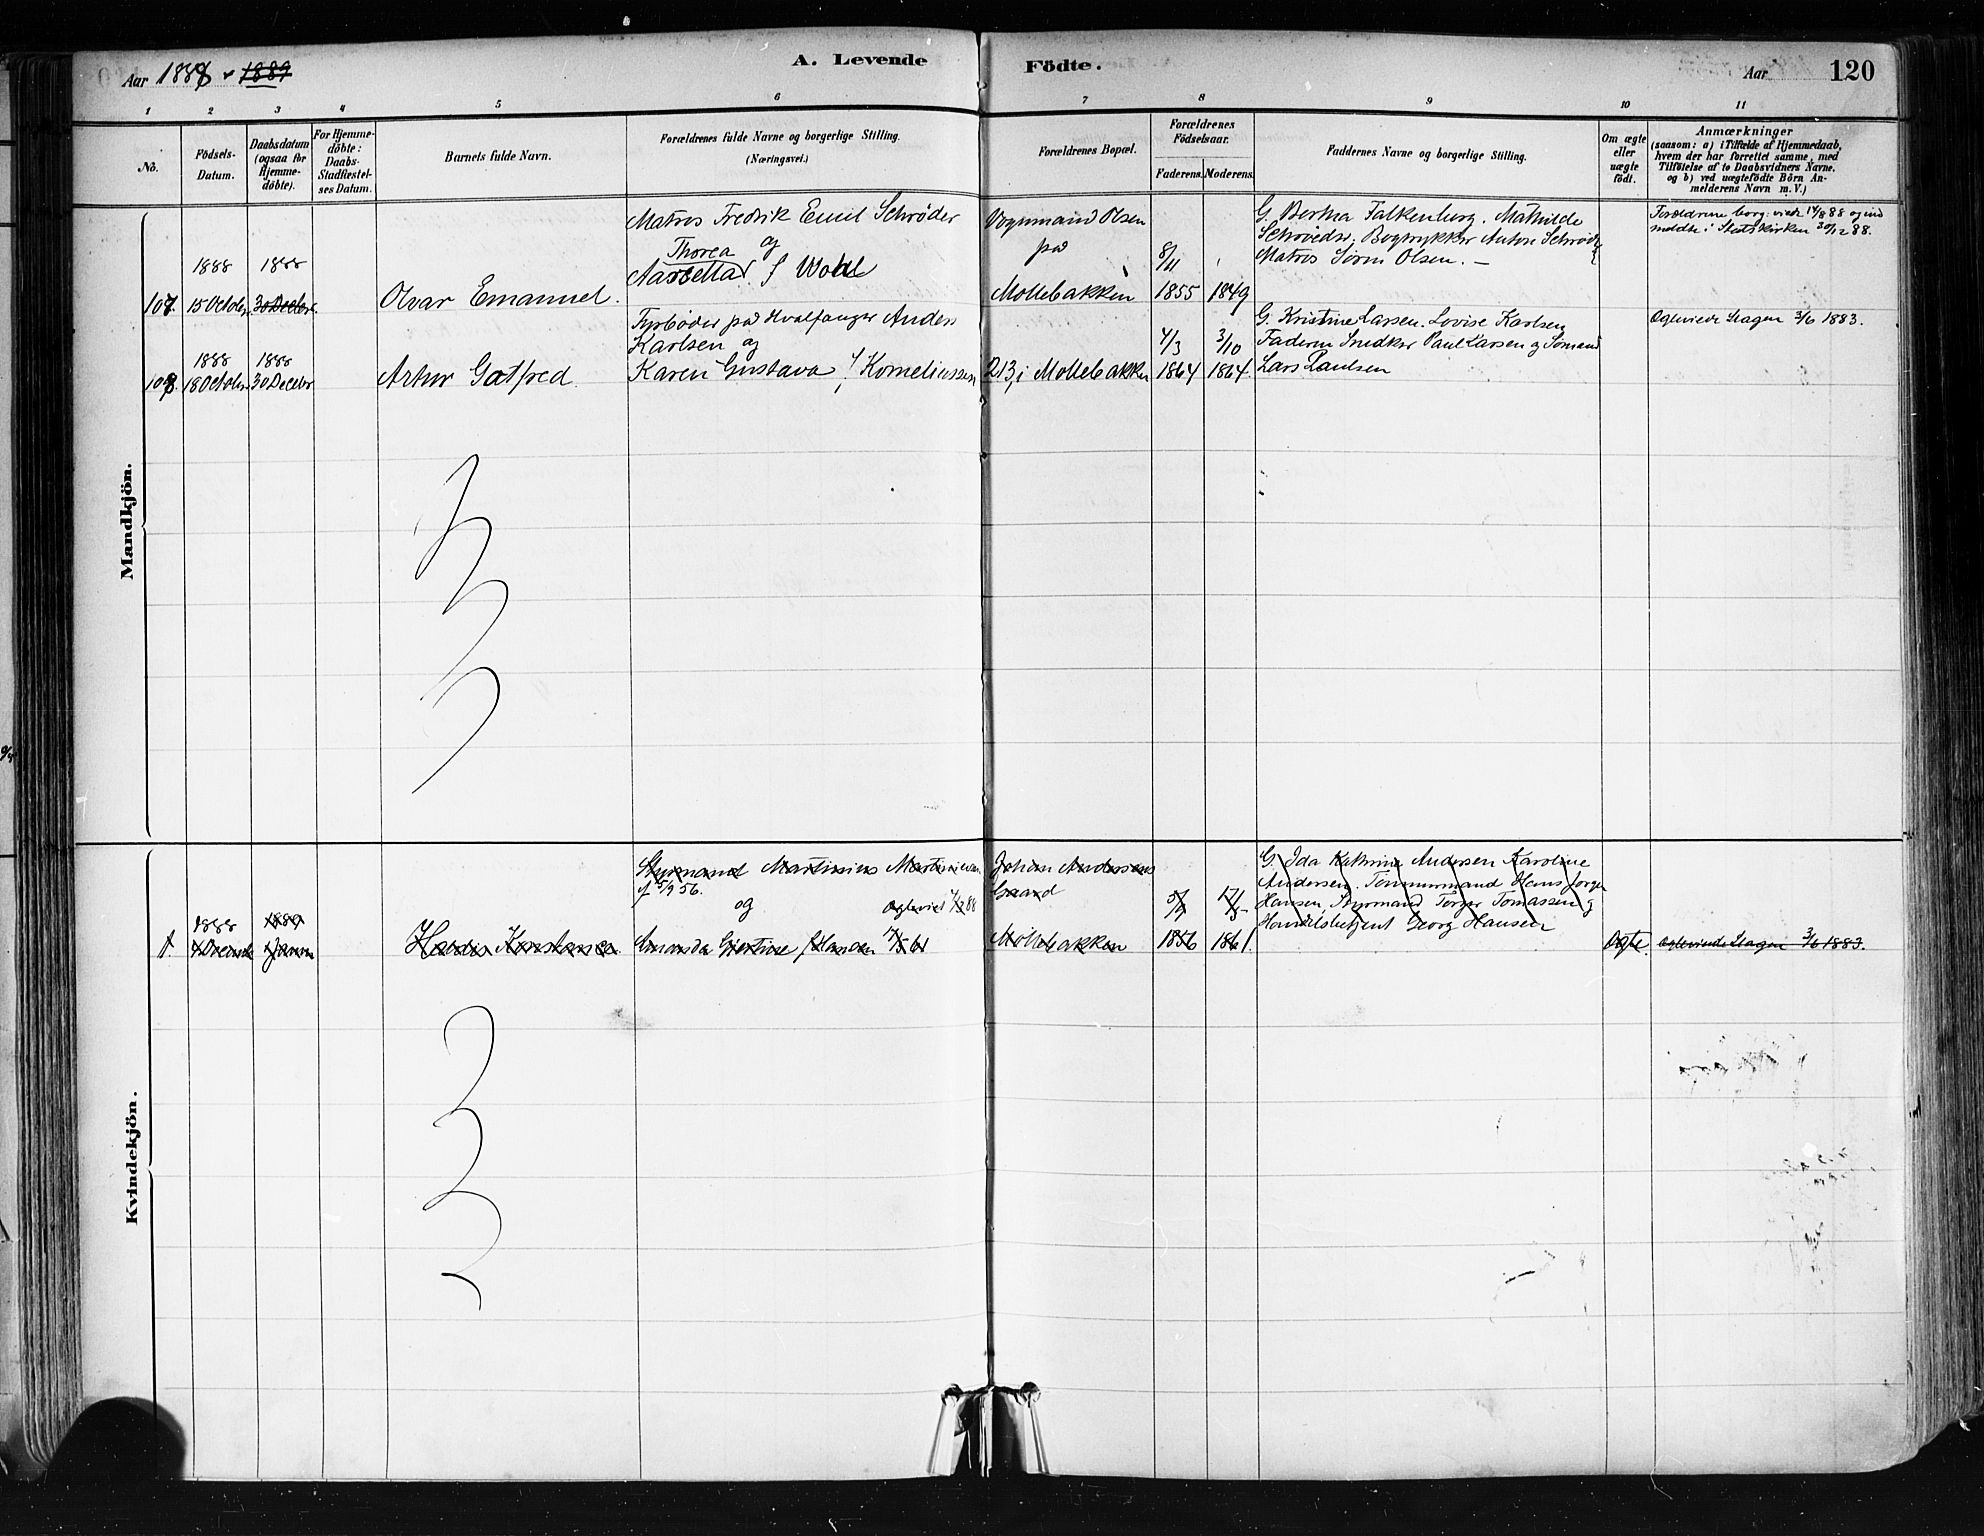 Aar 1888
1889
A. Levende
Födte.
Aar
120
1 2 3 4 5 6 7 8 9 10 11
No.
Födsels-
Datum.
Daabsdatum
(ogsaa for
Hjemme-
döbte).
For Hjemme-
döbte:
Daabs-
Stadfæstel-
ses Datum.
Barnets fulde Navn.
Forældrenes fulde Navne og borgerlige Stilling.
(Næringsvei.)
Forældrenes Bopæl.
Forældrenes
Födselsaar.
Faderens. Moderens.
Faddernes Navne og borgerlige Stilling.
Om ægte
eller
uægte
födt.
Anmærkninger
(saasom: a) i Tilfælde af Hjemmedaab,
hvem der har forrettet samme, med
Tilföielse af to Daabsvidners Navne,
og b) ved uægtefödte Börn An-
melderens Navn m. V.)
Mandkjön.
107.
1888
15 October
1888
30 Decbr.
Olvar Emanuel.
Matros Fredrik Emil Schrøder
og
Thorea
f. Wohl
Olsen
paa
Møllebakken
8/11
1855
1849
G. Berna Falkenberg. Mathilde
Schrøder, Bogtrykker Anton Schrøder
Matros Sørin Olsen. –
Forældrene borg. viede 17/8 88 og ind
meldte i Statskirken 30/12 88.
108
1888
18 October
1888
30 Decbr
Artur Gotfred.
Fyrbøder paa Hvalfanger Anders
Karlsen og
Karen Gustava f. Korneliussen
213, i Møllebakken
4/3
1864
3/10
1864.
G. Kristine Larsen. Lovise Karlsen
Faderen Snedker Paul Larsen og Sømand
Lars Paulsen
Ægteviede Slagen 3/6 1883.
Kvindekjön.
1.
1888
1889
Konstance.
Styrmand Martinius
f. 5/9 56.
og
Ægteviet
88
Amanda Gjertine f. Hansen 17/5 61
Johan Andersens
Gaard
Møllebakken
5/9
1856
17/5
1861.
G. Ida Kathrine Andersen Karoline
Andersen. Tømmermand Hans Jørgen
Hansen, Styrmand Torger Tomassen og
Handelsbetjent Georg Hansen
Ægte.
Ægteviede Slagen 3/6 1883.